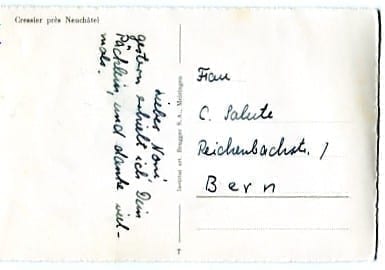 Cressier près Neuchâtel
Lieber Noni,
gestern erhielt ich Dein
Päcklein, und danke viel-
mals.
Institut art. Brugger S. A., Meiringen
T
Frau
C. Salute
Reichenbachstr. 1
Bern